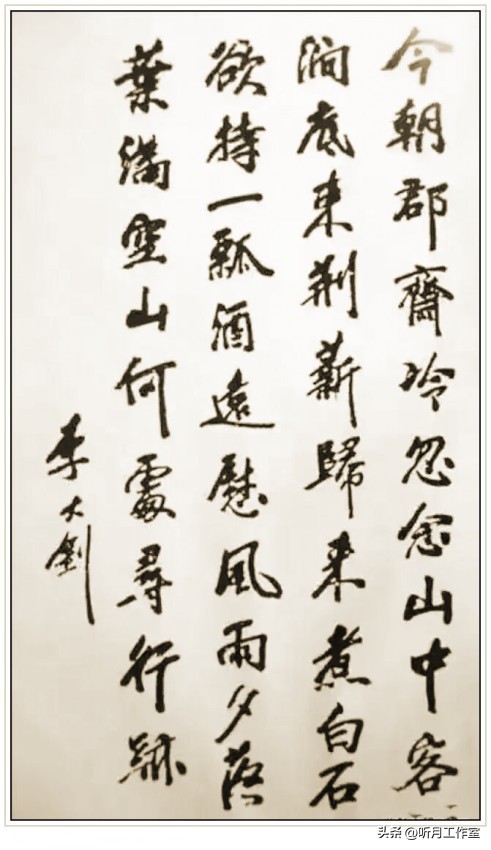 今朝郡齋冷忽念山中客
澗底束荆薪歸来煮白石
欲持一瓢酒遠慰風雨夕落
葉滿空山何處尋行跡
李大釗
头条 @听月工作室